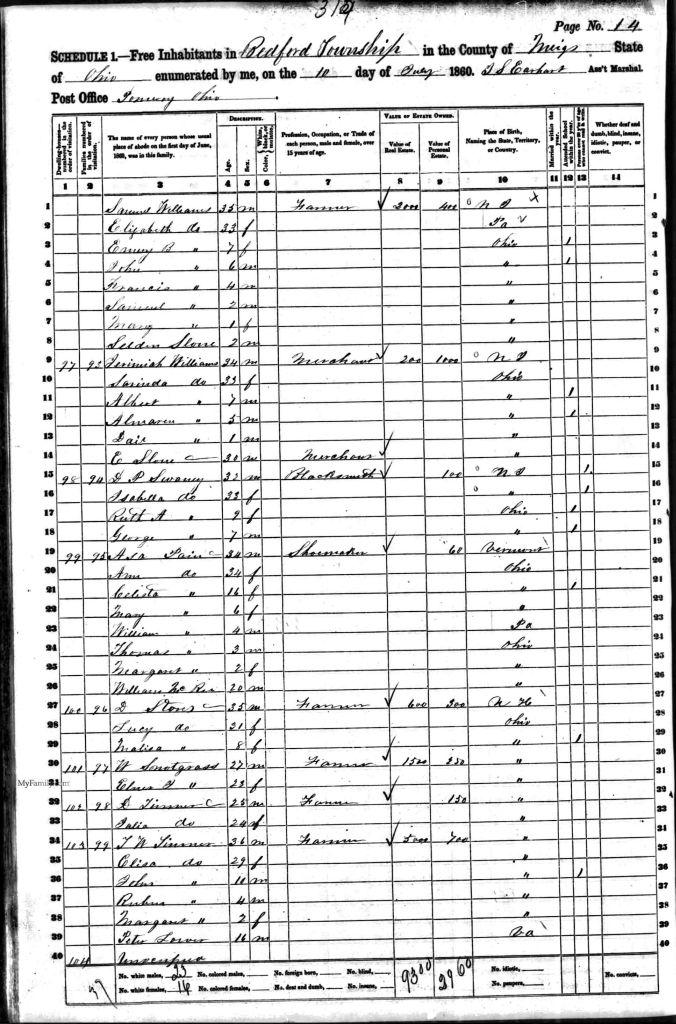 317
Page No. 14
SCHEDULE 1.—Free Inhabitants in Bedford Township in the County of Meigs State
of Ohio enumerated by me, on the 10 day of July 1860. T S Earhart Ass't Marshal.
Post Office Pomeroy Ohio
Dwelling-houses— numbered in the order of visitation. Families numbered in the order of visitation. The name of every person whose usual place of abode on the first day of June, 1860, was in this family. DESCRIPTION. Age. Sex. Color, Profession, Occupation, or Trade of each person, male and female, over 15 years of age. VALUE OF ESTATE OWNED. Value of Real Estate. Value of Personal Estate. Place of Birth, Naming the State, Territory, or Country. Married within the year. Attended School within the year. Whether deaf and dumb, blind, insane, idiotic, pauper, or convict.
1 2 3 4 5 6 7 8 9 10 11 12 13 14
1 Samuel Williams 35 m Farmer 2000 400 1
2 Elizabeth do 33 f Pa 2
3 Emery B " 7 f Ohio 1 3
4 John " 6 m " 1 4
5 Francis " 4 m " 5
6 Samuel " 2 m " 6
7 Mary " 1 f " 7
8 Selden Stone 2 m " 8
9 97 93 Jerimiah Williams 34 m Merchant 200 1000 9
10 Sarinda do 33 f Ohio 10
11 Albert " 7 m " 1 11
12 Almaren " 5 m " 1 12
13 " 1 m " 13
14 E Stone 30 m Merchant 14
15 98 94 D P Swaney 32 m Blacksmith 100 1 15
16 Isabella do 33 f " 1 16
17 Ruth A " 9 f Ohio 1 17
18 George " 7 m " 1 18
19 99 95 Asa Pain 34 m Shoemaker 60 Vermont 19
20 Ann do 34 f Ohio 20
21 Celista " 16 f " 1 21
22 Mary " 6 f " 22
23 William " 4 m Pa 23
24 Thomas " 3 m Ohio 24
25 Margaret " 2 f " 25
26 William 20 m " 26
27 100 96 D Stone 35 m Farmer 600 300 N H 27
28 Lucy do 31 f Ohio 28
29 Malisa " 8 f " 1 29
30 101 97 W Snotgrass 27 m Farmer 1500 250 " 30
31 " 23 f " 31
32 102 98 25 m Farmer 150 " 32
33 Julia do 24 f " 33
34 103 99 T W 36 m Farmer 5000 700 " 34
35 Elisa do 29 f " 35
36 John " 10 m " 1 36
37 Ruben " 4 m " 37
38 Margaret " 2 f " 38
39 Peter 16 m Va 39
40 104 Unoccupied 40
No. white males, 23 No. colored males, No. foreign born, No. blind, 9300 2960 No. idiotic, No. convicts,
No. white females, 16 No. colored females, No. deaf and dumb, No. insane, No. paupers,
39
MyFamily.com